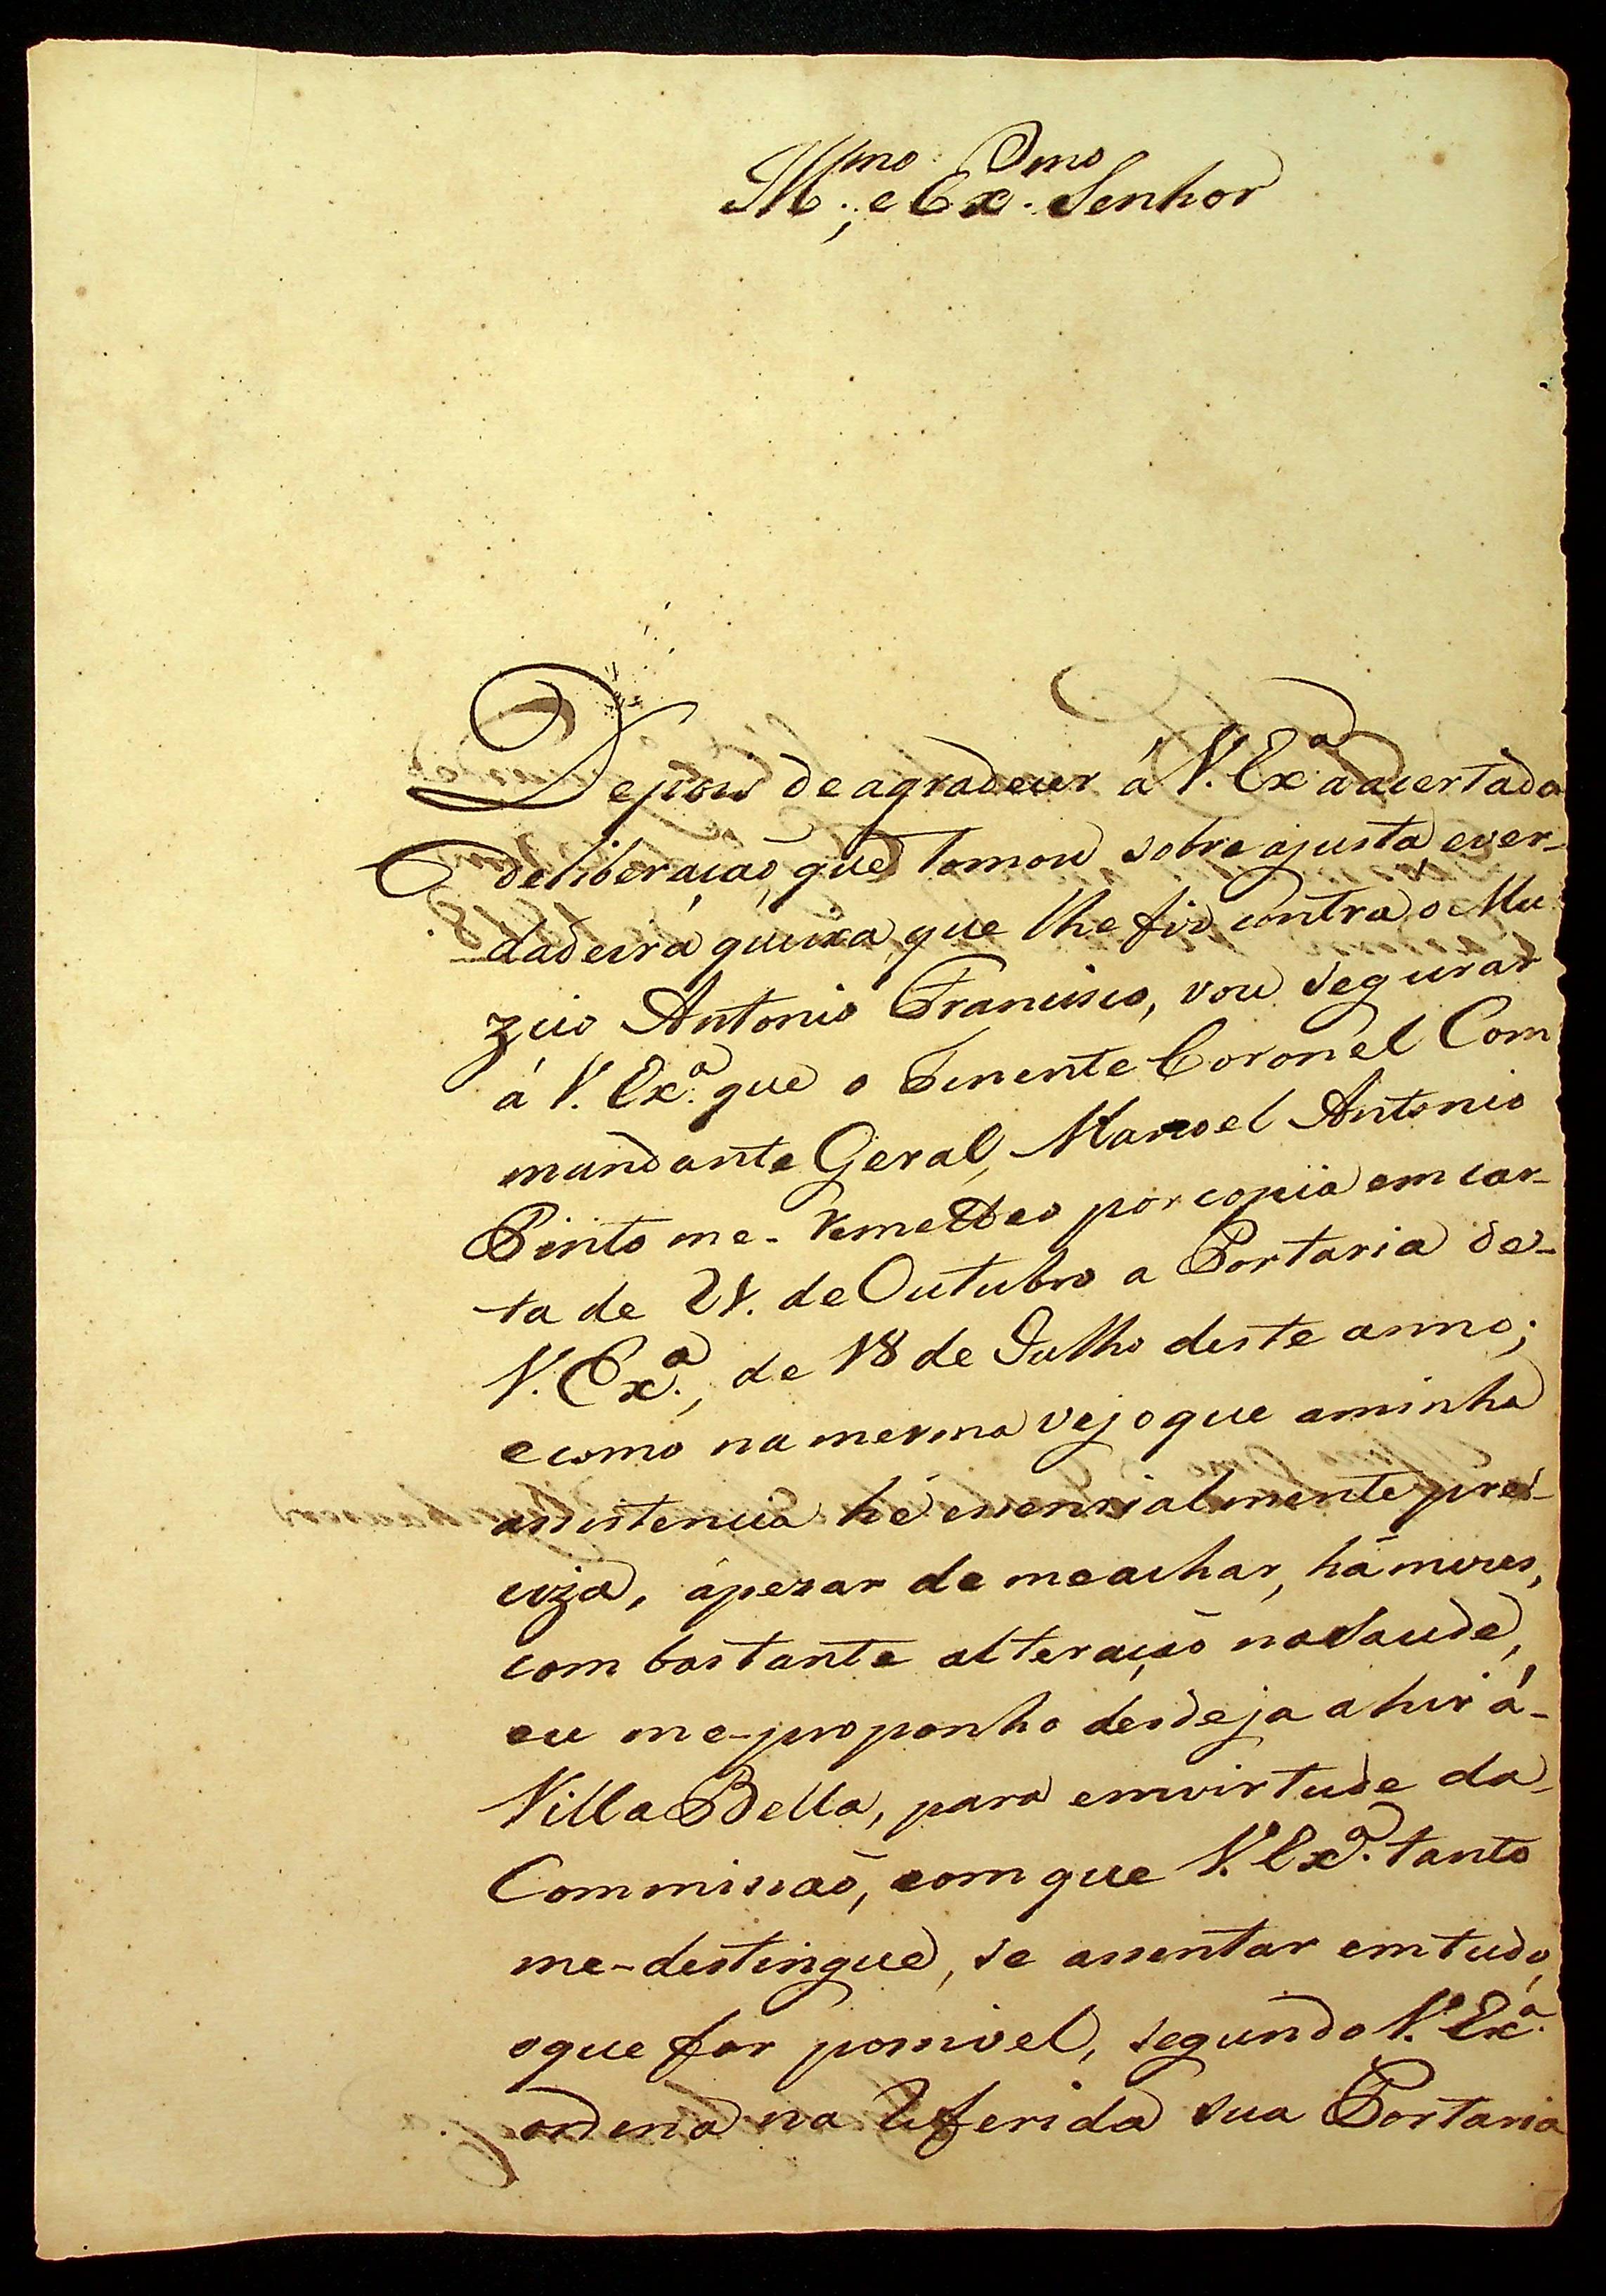 Ill.mo e Ex.mo Senhor
Depois de agradecer á V. Ex.a a acertada
deliberação, que tomou sobre a justa e ver-
dadeira queixa, que lhe fiz contra o Mu
zico Antonio Francisco, vou segurar
á V. Ex.a que o Tenente Coronel Com
mandante Geral, Manoel Antonio
Pinto me-remetteo por copia em car-
ta de 21. de Outubro a Portaria de-
V. Ex.a, de 18 de Julho deste anno;
e como na mesma vejo que a minha
assistencia hé essencialmente pre-
ciza, ápezar de me achar, há mezes,
com bastante alteração na saude,
eu me-proponho desde já a hir á-
Villa Bella, para em virtude da-
Commissaõ, com que V. Ex.a tanto
me-destingue, se assentar em tudo,
o que for possivel, segundo V. Ex.a
ordena na referida sua Portaria